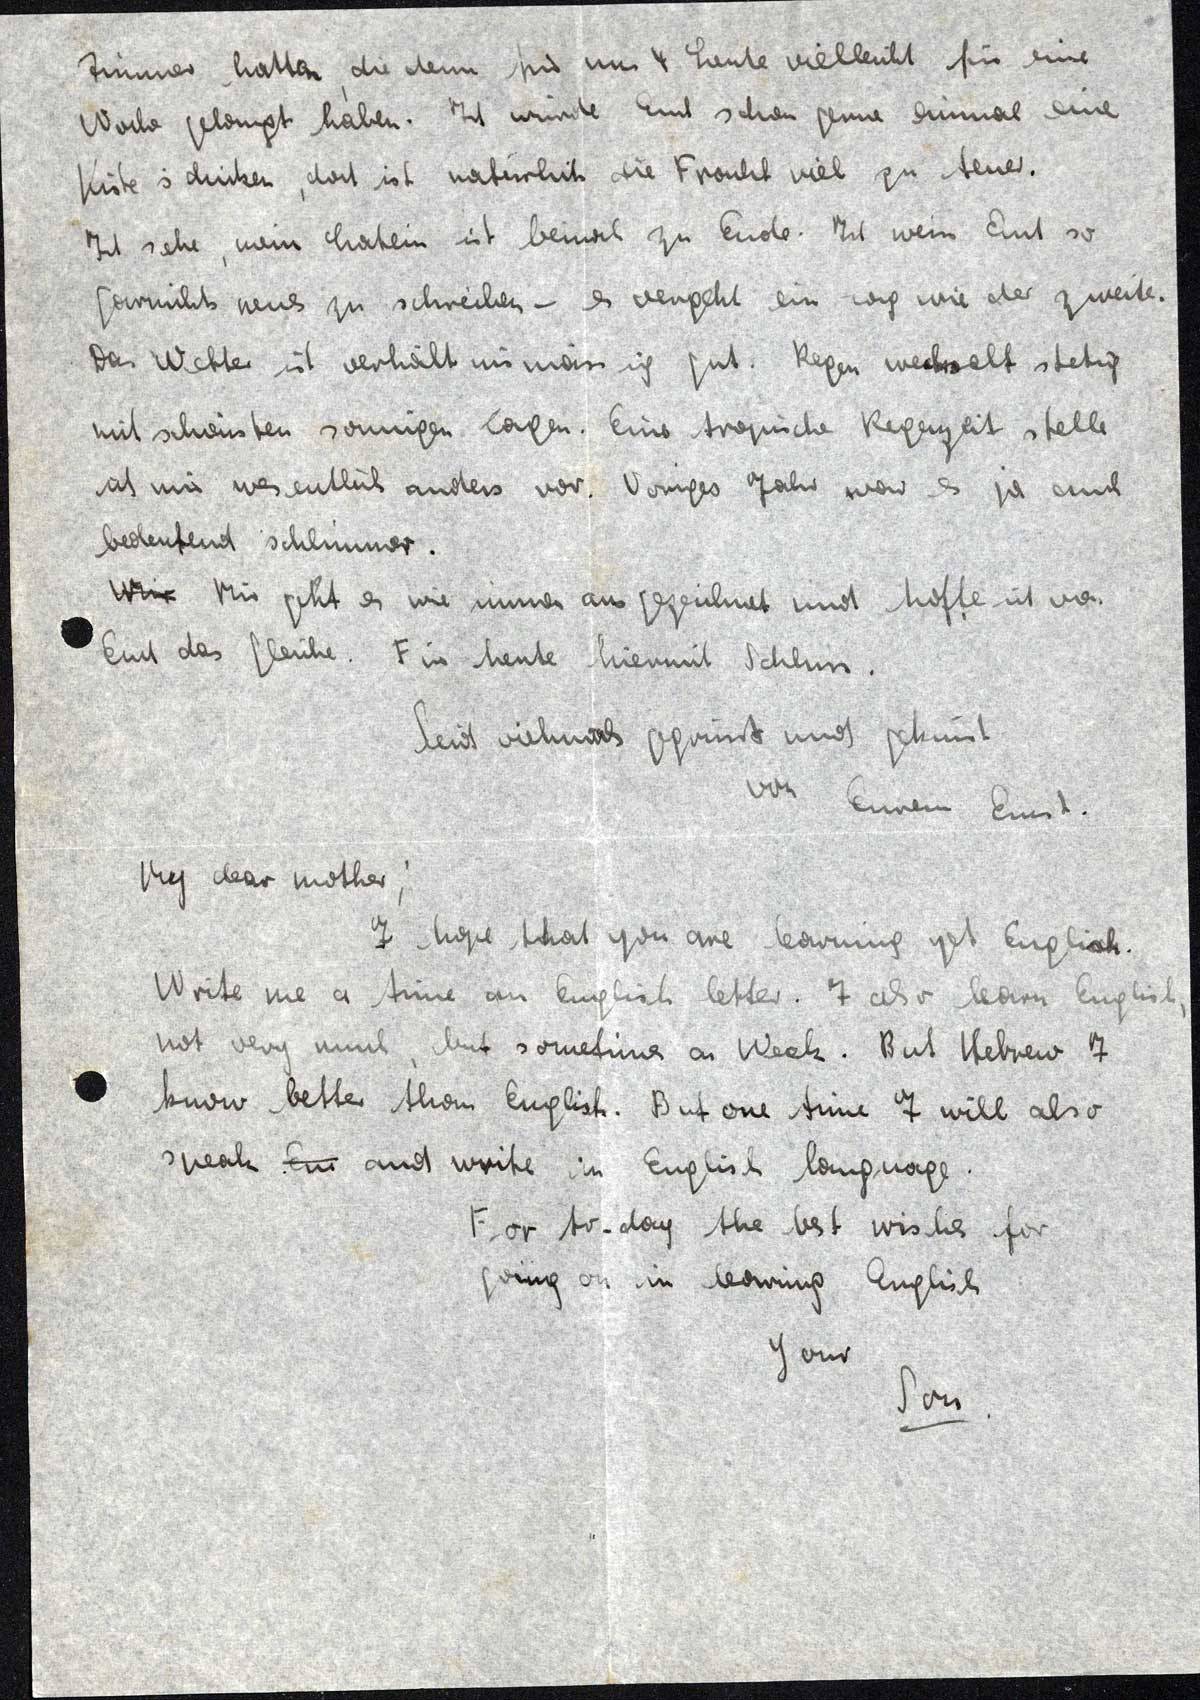 Zimmer hatten, die dann für uns 4 Leute vielleicht für eine
Woche gelangt haben. Ich würde Euch schon gerne einmal eine
Kiste schicken, doch ist natürlich die Fracht viel zu teuer.
Ich sehe, mein Latein ist beinah zu Ende. Ich weis Euch so
garnichts neues zu schreiben – es vergeht ein Tag wie der zweite.
Das Wetter ist verhältnismässig gut. Regen wechselt stetig
mit schönsten sonnigen Tagen. Eine tropische Regenzeit stelle
ich mir wesentlich anders vor. Voriges Jahr war es ja auch
bedeutend schlimmer.
Wir Mir geht es wie immer ausgezeichnet und hoffe ich von
Euch das gleiche. Für heute hiermit Schluss.
Seid vielmals gegrüsst und geküsst
von Eurem Ernst.
My dear mother,!
I hope that you are learning yet English.
Write me a time an English letter. I also learn English,
not very much, but sometimes a Week. But Hebrew I
know better than English. But one time I will also
speak En and write in English language.
For to-day the best wishes for
going on in learning English
Your
Son.